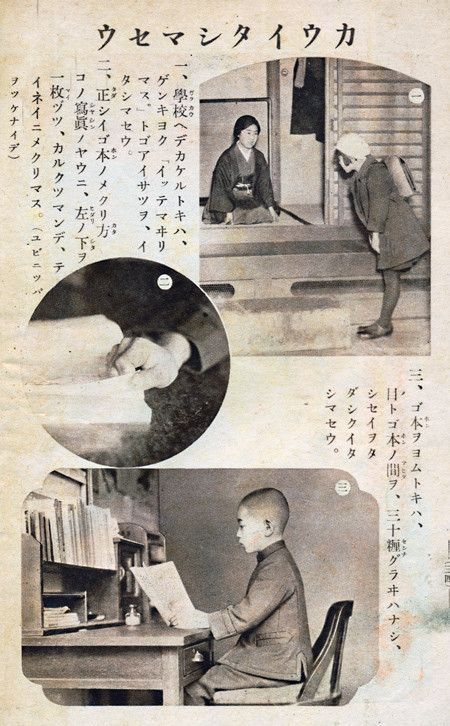 カウイタシマセウ
一、學校ヘデカケルトキハ、
ゲンキヨク「イッテマヰリ
マス。」トゴアイサツヲ、イ
タシマセウ。
二、正シイゴ本ノメクリ方
コノ寫眞ノヤウニ、左ノ下ヲ
一枚ヅツ、カルクツマンデ、テ
イネイニメクリマス。(ユビニツバ
ヲツケナイデ)
三、ゴ本ヲヨムトキハ、
目トゴ本ノ間ヲ、三十糎グラヰハナシ、
シセイヲタ
ダシクイタ
シマセウ。
一
二
三